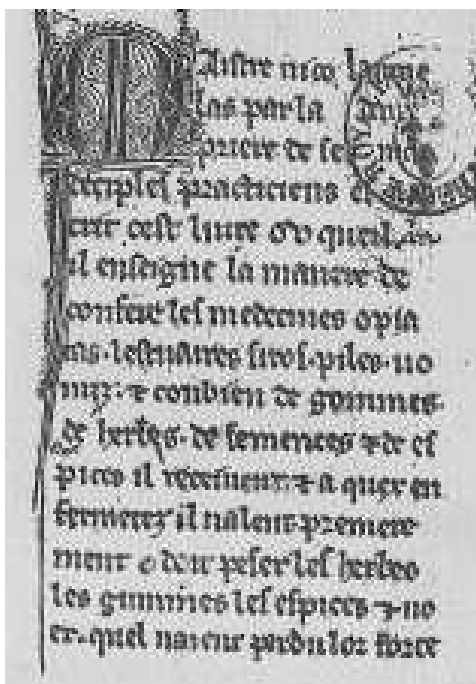 Maistre nicolas
las par la
priere de ses
deciples practiciens
cest liure ou queil
il enseigne la maniere de
confire les medecines opia
tas. lestuaires siros. piles. uo
mix. & conbien de gommes.
de herbes. de semences & de es
pices il receiuent. & a quex en
fermetez il ualent. premere
ment doit peser les herbes
les gummes les espices & no
er. quel naient perdu lor force